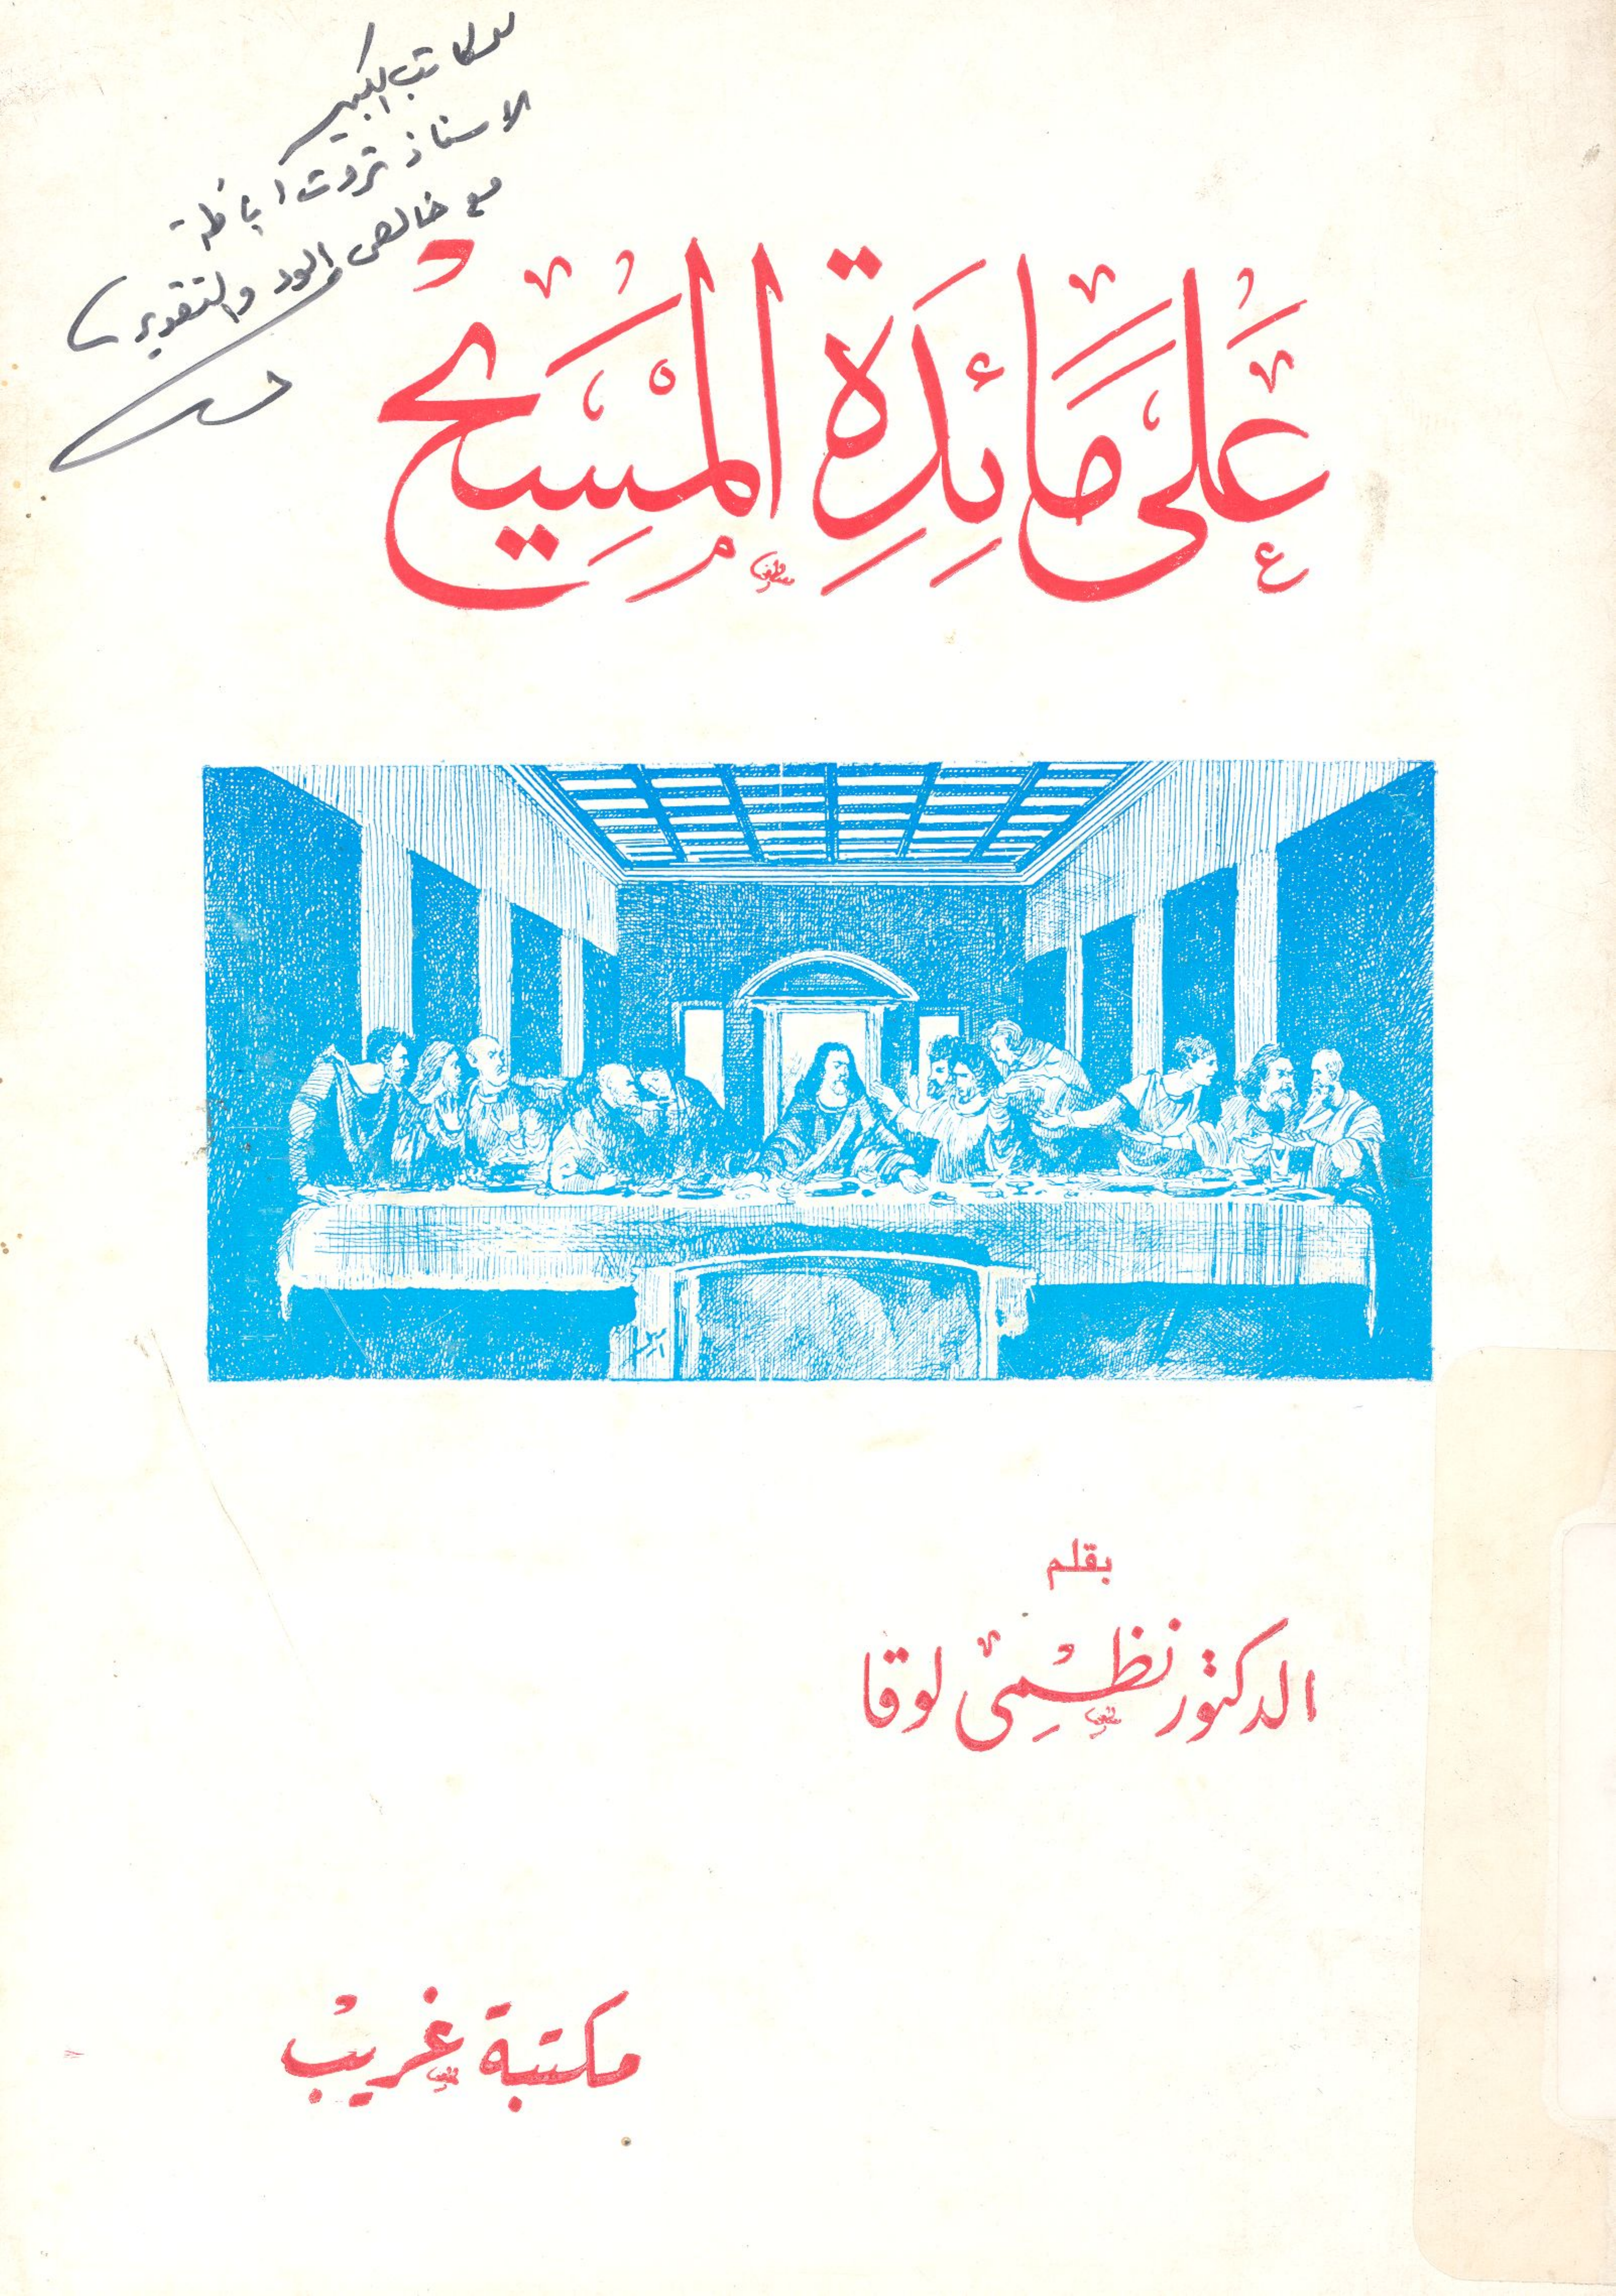 للكاتب الكبير
الاستاذ ثروت اباظة
مع خالص الود والتقدير
عَلَى مَائِدَةِ الْمَسِيحْ
بقلم
الدكتور نظمِى لوقا
مكتبة غريب